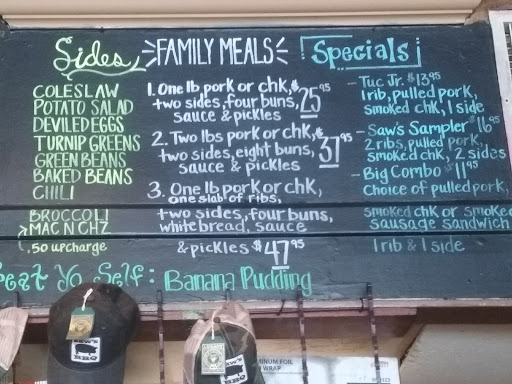 Sides
COLESLAW
POTATO SALAD
DEVILED EGGS
TURNIP GREENS
GREEN BEANS
BAKED BEANS
CHILI
BROCCOLI
MAC N CHZ
.50 upcharge
FAMILY MEALS
1. One lb pork or chk, $25.95
two sides, four buns,
sauce & pickles
2. Two lbs pork or chk, $37.95
two sides, eight buns,
sauce & pickles
3. One lb pork or chk,
one slab of ribs,
two sides, four buns,
white bread, sauce
& pickles $47.95
Specials
- Tuc Jr. $13.95
1 rib, pulled pork,
smoked chk, 1 side
- Saw's Sampler $16.95
2 ribs, pulled pork,
smoked chk, 2 sides
- Big Combo $11.95
Choice of pulled pork,
smoked chk or smoked
sausage sandwich
1 rib & 1 side
eat Yo Self: Banana Pudding
SAW'S
BBQ
BBQ